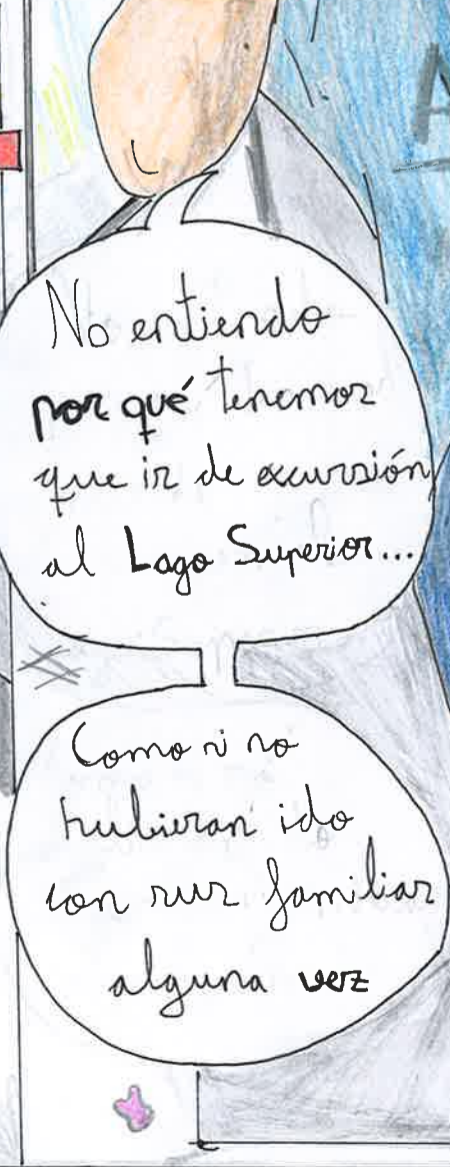 No entiendo
por qué tenemos
que ir de excursión
al Lago Superior...
Como si no
hubieran ido
con sus familias
alguna vez
A